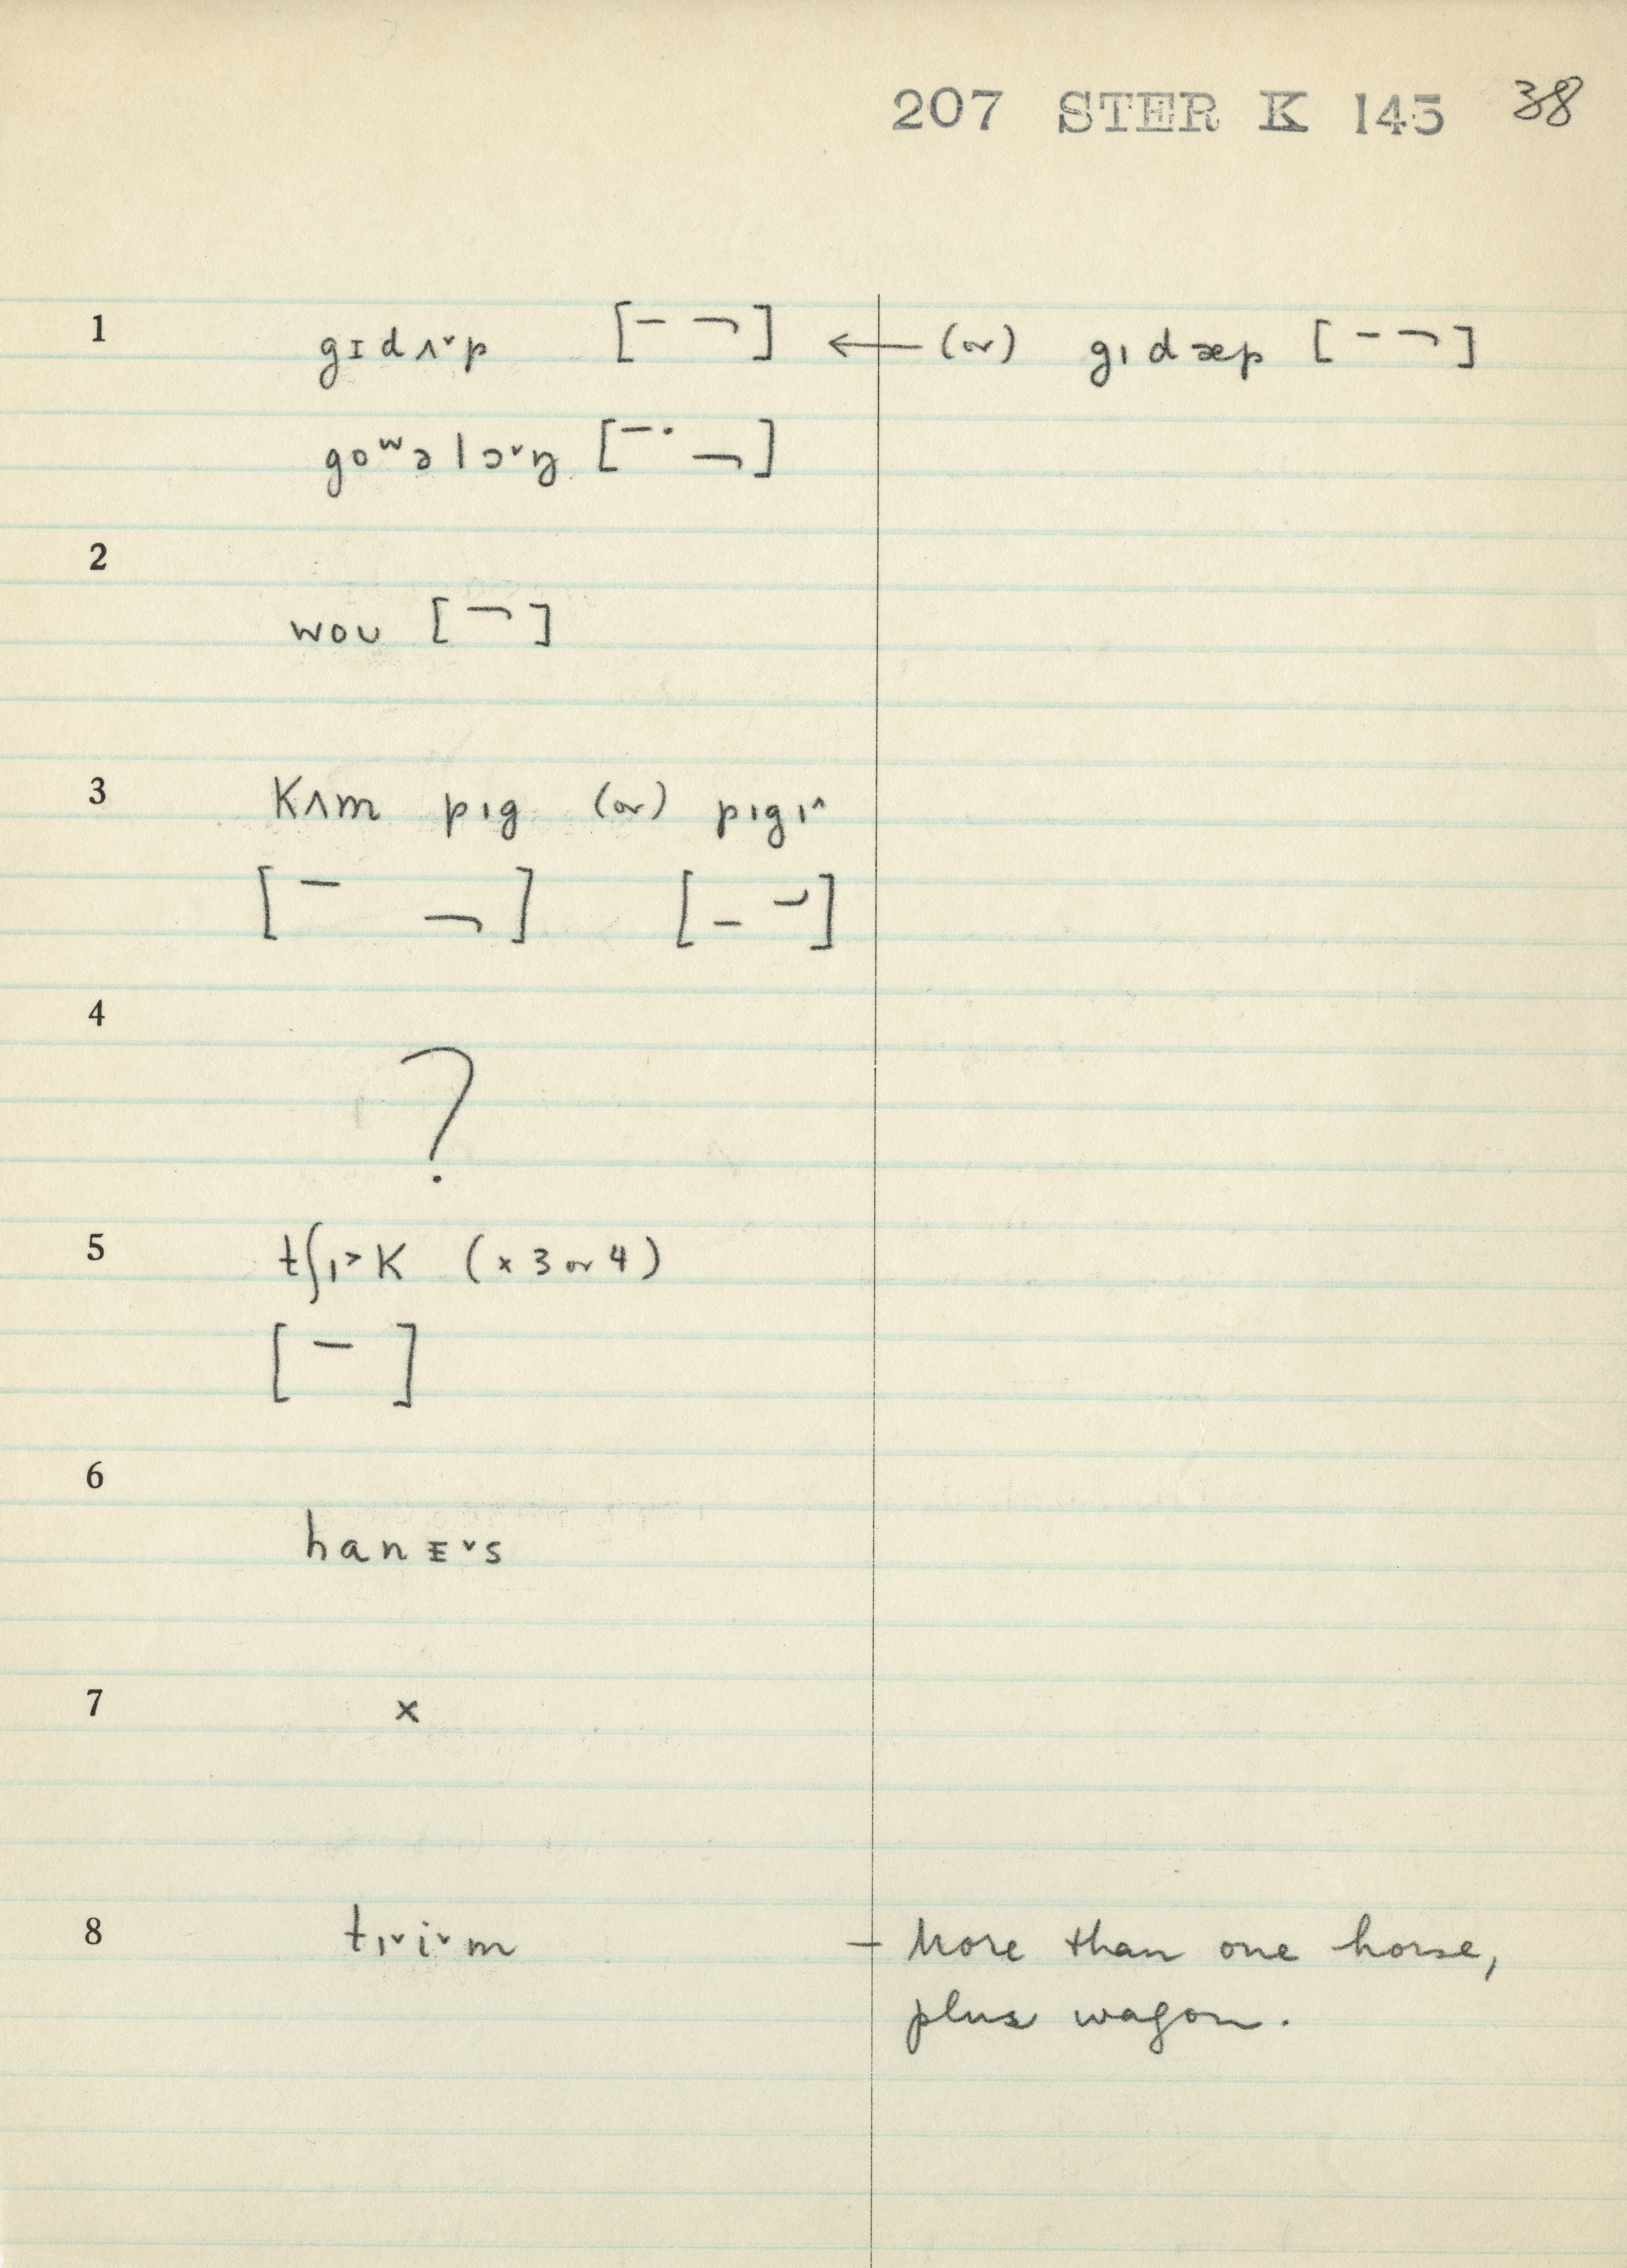 207 STER K 145 38
1 gɪdʌ˅p [– ¬] ← (or) gıdæp [– ¬]
goʷəlɔ˅ŋ [–· ¬]
2
woʊ [¬]
3 Kʌm pıg (or) pıgı^
[– ¬] [– ⌣]
4
?
5 tʃı˃K (x 3 or 4)
[–]
6
hanɪ˅s
7 x
8 tı˅i˅m – More than one horse,
plus wagon.